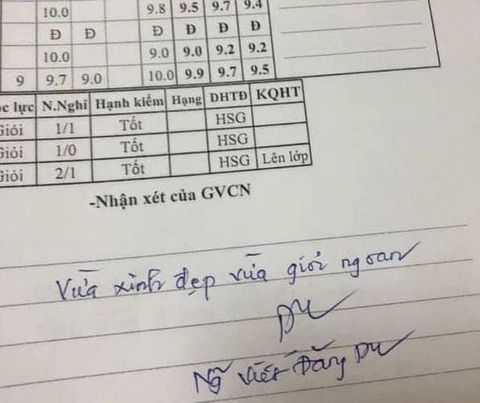 10.0 9.8 9.5 9.7 9.4
Đ Đ Đ Đ Đ Đ
10.0 9.0 9.0 9.2 9.2
9 9.7 9.0 10.0 9.9 9.7 9.5
ọc lực N.Nghỉ Hạnh kiểm Hạng DHTĐ KQHT
Giỏi 1/1 Tốt HSG
Giỏi 1/0 Tốt HSG
Giỏi 2/1 Tốt HSG Lên lớp
-Nhận xét của GVCN
Vừa xinh đẹp vừa giỏi ngoan
Du
Ng Viết Đăng Du